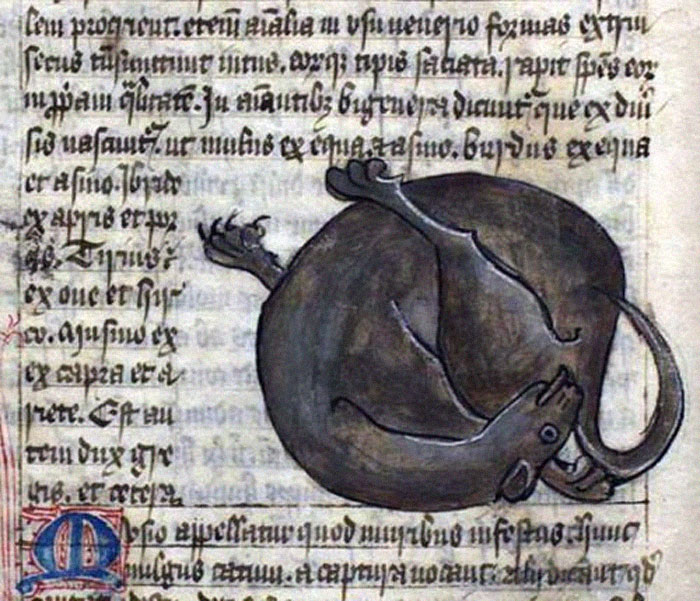 lem progrient. etenim aialia in usu uenerio formas extrin
secus tnsmittunt intus. eorq; tipis saciata. rapit spes eor
in ppam qlitate. In aiantibz bigenera dicunt que ex diu
sis nascunt. ut mulus ex equa & asino. burdus ex equa
et asino. Ibride
ex apris et por
cis. Tirius
ex oue et hir
co. Musino ex
ex capra et a
riete. Est au
tem dux gre
gis. et cetera.
Musio appellatur quod muribus infestus. hunc
uulgus catum. a captura uocant. alii dicunt qd